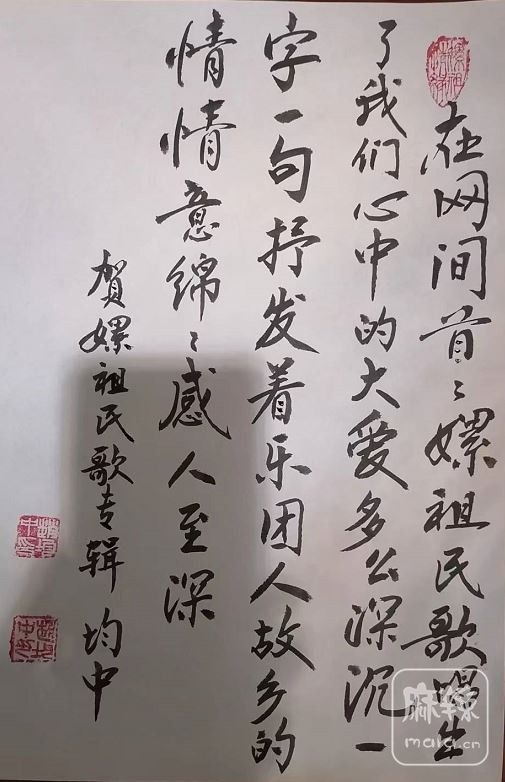 在网间首〻嫘祖民歌唱出
了我们心中的大爱多么深沉一
字一句抒发着乐团人故乡的
情情意绵〻感人至深
贺嫘祖民歌专辑 均中
麻辣
mala.cn